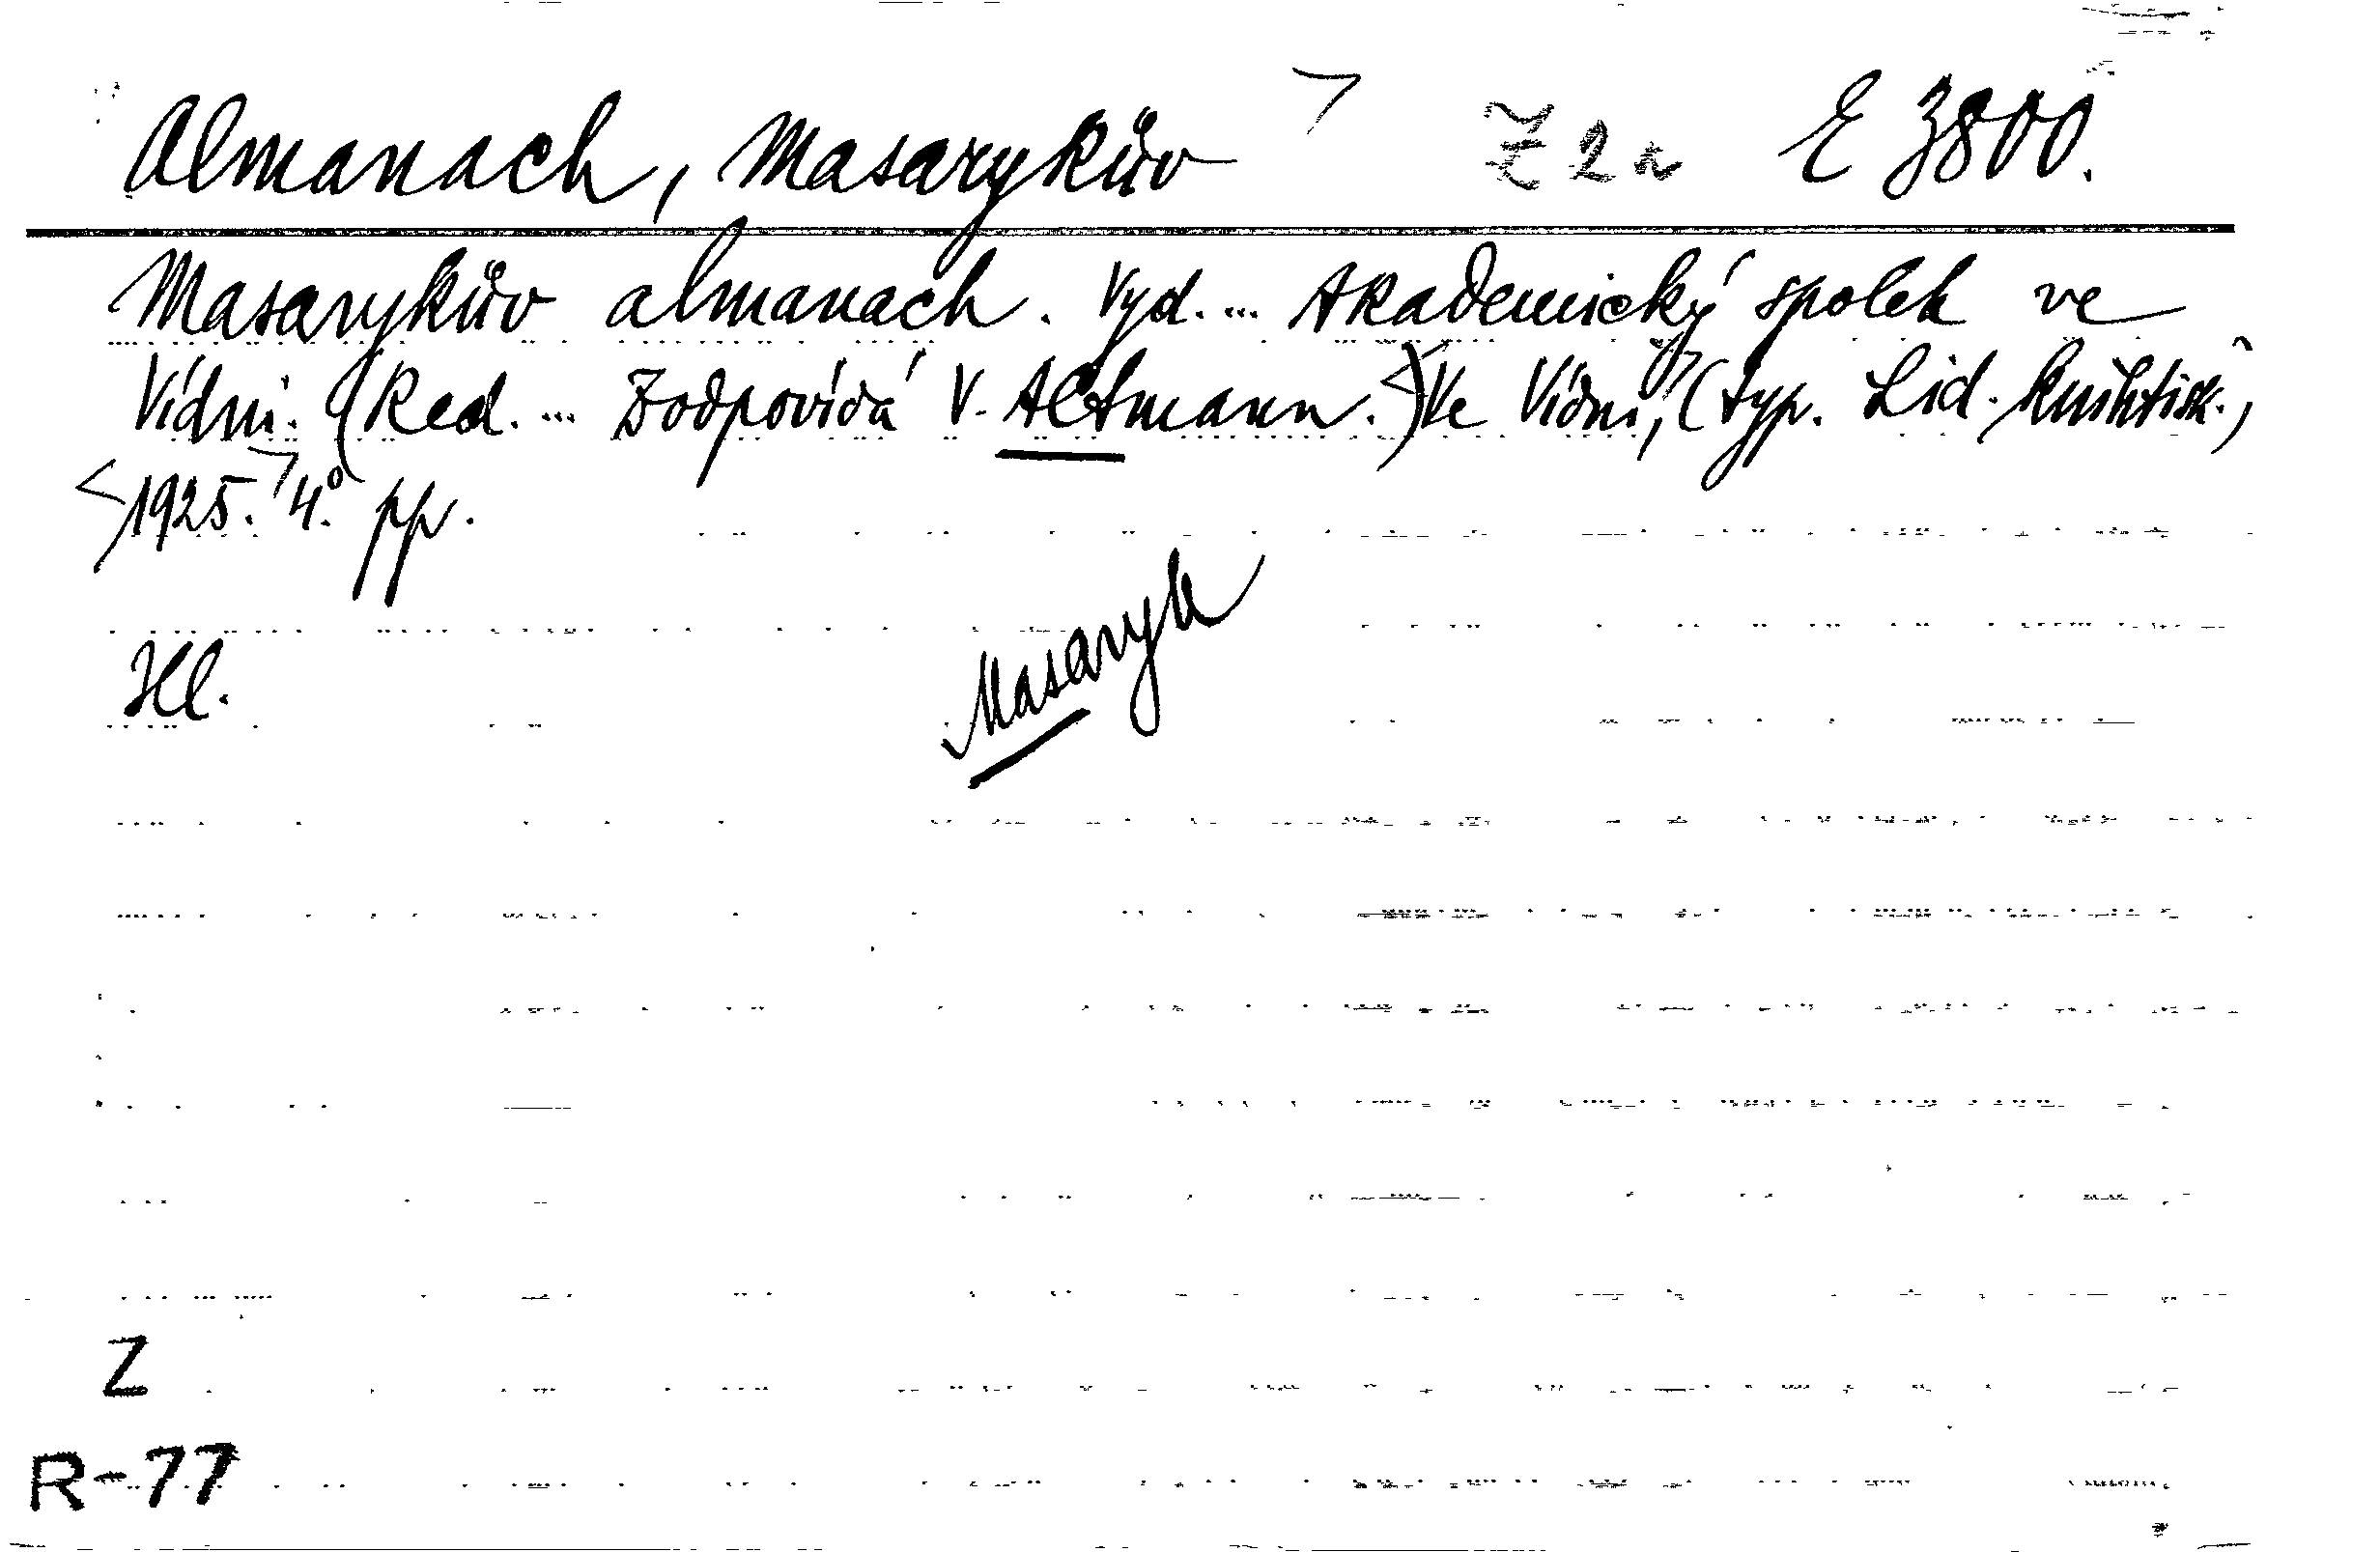 Almanach, Masarykův Z 2a E 3800.
Masarykův almanach. Vyd. ... Akademický spolek ve
Vídni. (Red. ... Zodpovídá V. Altmann.) Ve Vídni, (typ. Lid. knihtisk.,
1925. 4.° pp.
Masaryk
Hl.
Z
R-77